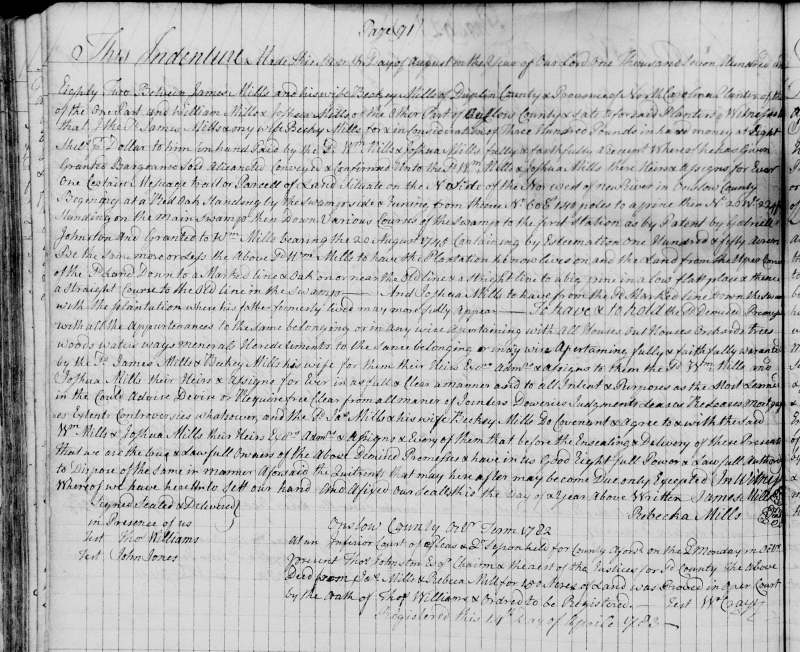 Page 91
This Indenture Made this Day of August in the Year of Our Lord One Thousand Seven Hundred and
Eighty Two Between James Mills and his wife Beckey Mills of Duplin County & Province of North Carolina Planter of the
of the One Part and William Mills & Joshua Mills of the Other Part of Onslow County & State aforesaid Planters Witnesseth
that I the Sd James Mills & my wife Becky Mills for & in Consideration of Three Hundred Pounds in hand money at Eight
Shells Pr Dollar to him in hand Paid by the Sd Wm Mills & Joshua Mills fully & faithfully Whereof he has Given
Granted Bargained Sold Conveyed & Confirmed Unto the Sd Wm Mills & Joshua Mills there Heirs & Assigns for Ever
One Certain Message tract or Parcell of Land Situate on the N Side of the Nor west of new River in Onslow County
Begening at a Red Oak Standing by the Swamp side & Runing from thence No 60 Et 140 poles to a pine then No
Standing on the main Swamp then Down Various Courses of the Swamp to the first Station as by Patent by Gabriel
Johnston And Granted to Wm Mills bearing the 20 August 1745 Containing by Esteemation One Hundred & fifty Acres
be the same more or less the Above Sd Wm Mills to have the Plantation he now lives on and the Land from the Upper Corner
of the Sd Land Down to a Markd line Oak on or near the Old line & a straight line to a big pine in a low flat place & then
a straight Course to the Old line in the Swamp And Joshua Mills to have from the Sd Marked line Down the Swamp
with the Plantation where his father formerly lived may more fully appear To have & to hold the Sd Demised Premises
with all the Appurtenances to the same belonging or in any wise Apertaining with All Houses Out Houses Orchards trees
woods waters ways menerals Heredetements to the same belonging or in any wise Apertaining fully & faithfully warranted
by the Sd James Mills & Beckey Mills his wife for them their Heirs Exrs Admrs & Assigns to them the Sd Wm Mills and
Joshua Mills their Heirs & Assigns for Ever in as full & Clear a manner as to all Intent & Purposes as the Most Learned
in the Could Advise Devise or Require free Clear from all maner of Jointers Doweries Judgments Leases Releases mortgages
or Extents Controversies whatsoever and the Sd Jas Mills & his wife Beckey Mills Do Covenant & Agree to & with the said
Wm Mills & Joshua Mills their Heirs Exrs Admrs & Assigns & Every of them that before the Ensealing & Delivery of these Presents
that we are the true & Lawfull Owners of the Above Demised Premeses & have in us Good Right full Power & Lawfull Authority
to Dispose of the same in manner Aforesaid the Quitrents that may here after may become Due only Excepted In Witness
Whereof we have hereunto Sett our hand And Afixed our Seals this the Day & Year Above Written James Mills
Signed Sealed & Delivered
Rebecka Mills
in Presence of us
Test Tho Williams
Test John Jones
Onslow County Octr Term 1782
At an Inferior Court of Pleas & Qr Session held for County Aforsd on the 2 Monday in Octr
present Thos Johnston Esqr Chairm & the rest of the Justices for Sd County the Above
Deed from Jas Mills & Rebeca Mills for 150 Acres of Land was Proved in Open Court
by the Oath of Thos Williams & Ordred to be Registered Test Wm Cray
Registered this 14th Day of Aprile 1783